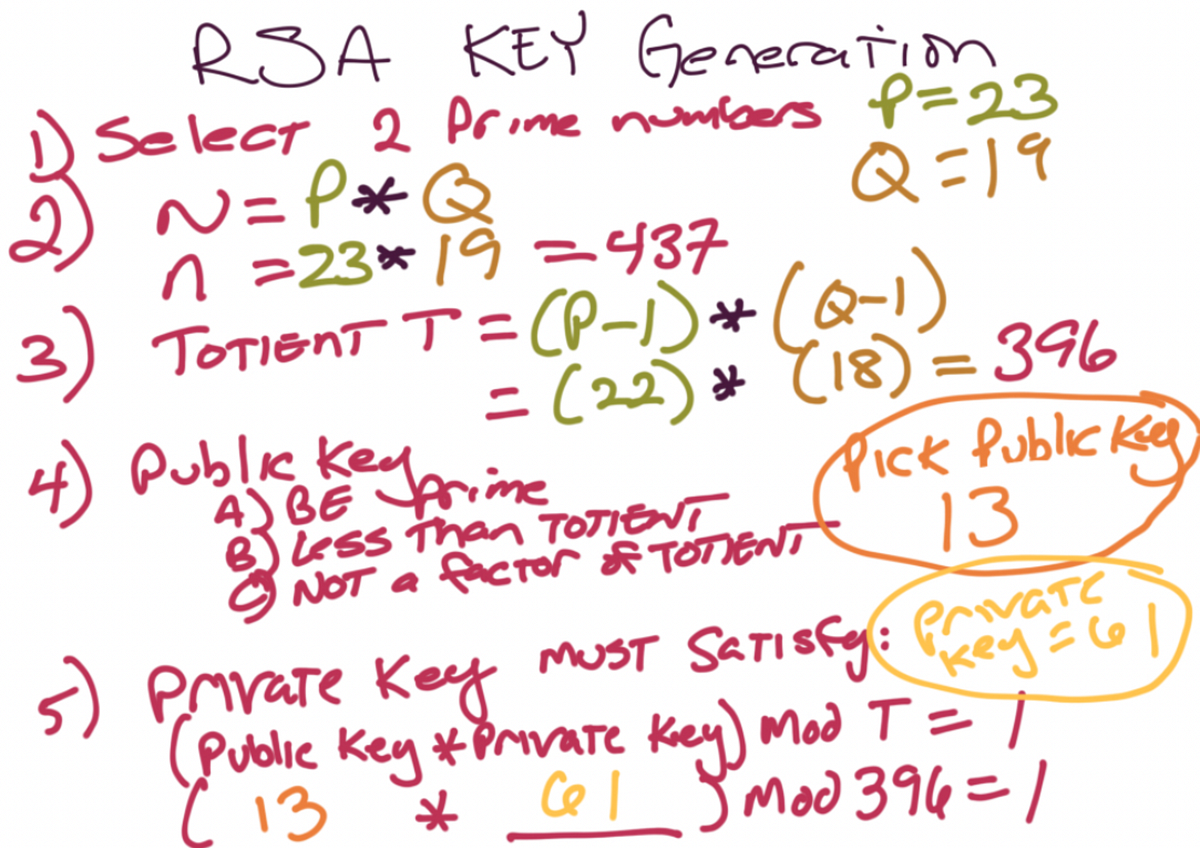 RSA KEY Generation
1) Select 2 Prime numbers P=23
Q=19
2) N=P*Q
n=23*19=437
3) TOTIENT T=(P-1)*(Q-1)
=(22)*(18)=396
4) Public Key
A) BE prime
B) Less Than TOTIENT
C) NOT a factor of TOTIENT
Pick Public Key
13
5) Private Key must Satisfy:
Private
Key=61
(Public Key *Private Key) Mod T=1
(13 * 61) Mod 396=1